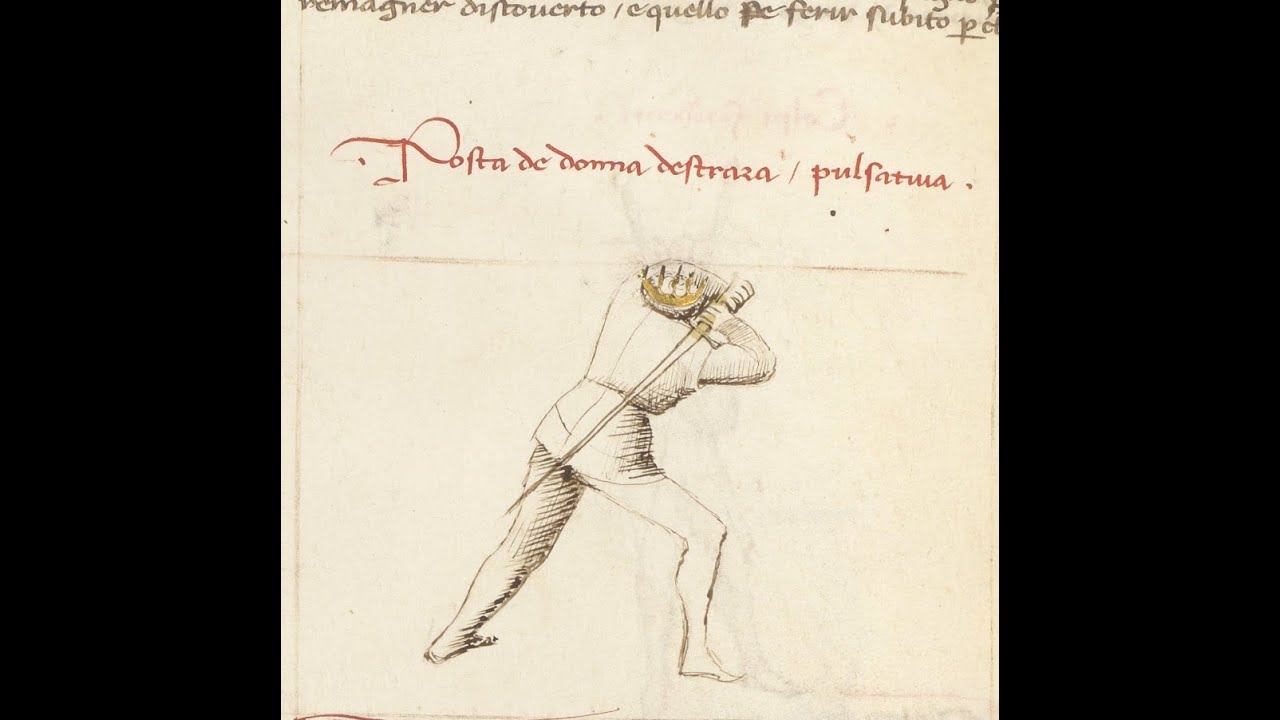 remagner discoverto / e quello pe ferir subito p
Posta de donna destraza / pulsativa .